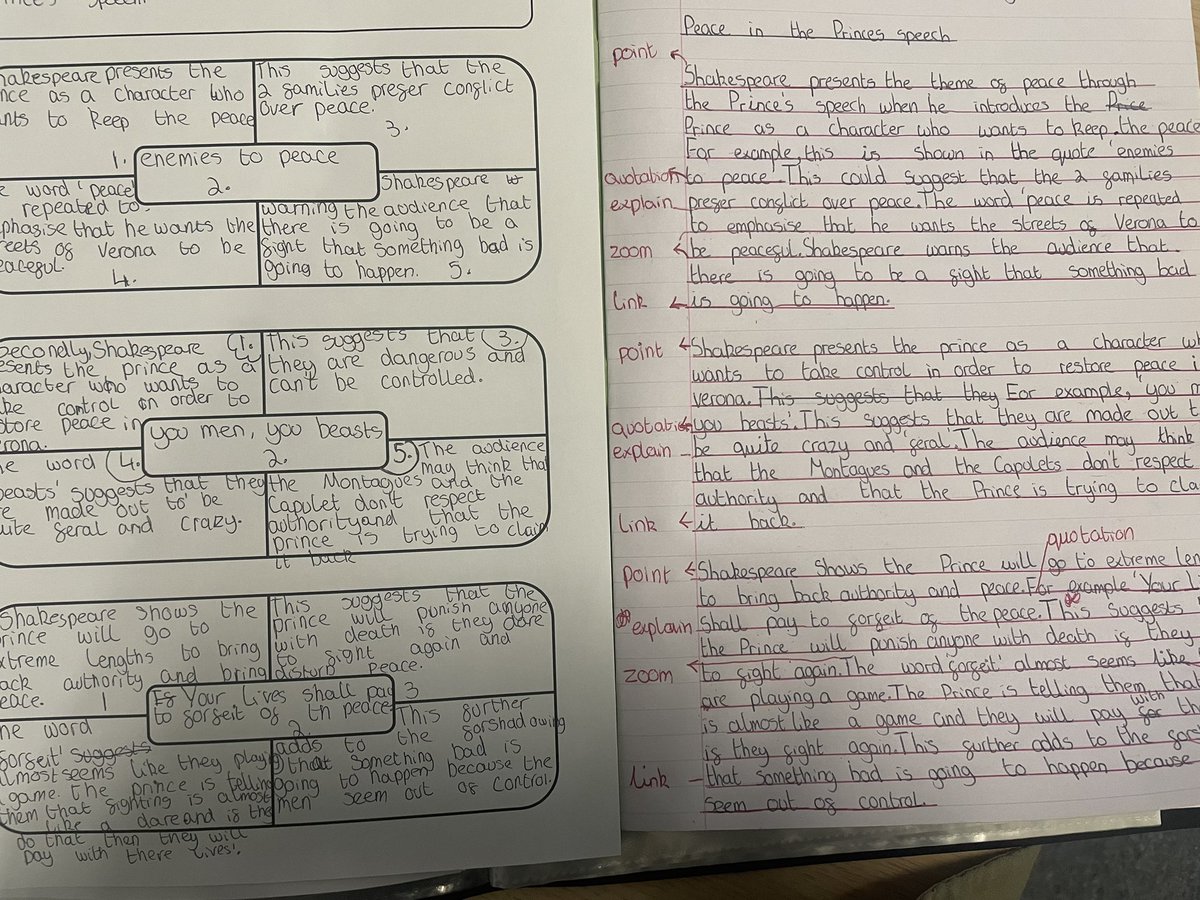 speech
hakespeare presents the
nce as a character who
nts to keep the peace
1.
This suggests that the
2 families prefer conflict
over peace.
3.
enemies to peace
2.
e word 'peace'
repeated to
phasise that he wants the
reets of Verona to be
eaceful.
4.
Shakespeare
warning the audience that
there is going to be a
fight that something bad is
going to happen. 5.
Secondly, Shakespeare 1.
esents the prince as a
haracter who wants to
ke control in order to
store peace in
erona.
This suggests that 3.
they are dangerous and
can't be controlled.
you men, you beasts
2.
he word 4.
beasts' suggests that they
re made out to be
uite feral and crazy.
5. The audience
may think tha
the Montagues and the
Capulet don't respect
authority and that the
prince is trying to claim
it back
Shakespeare shows the
prince will go to
xtreme lengths to bring
ack authority and bring
eace. 1
This suggests that the
prince will punish anyone
with death if they dare
to fight again and
disturb peace.
3
If Your lives shall pay
to forfeit of th peace
2
he word
forfeit' suggests
almost seems like they playing
a game. the prince is telling
them that fighting is almost
like a dare and if the
do that then they will
pay with there lives'.
This further
adds to the forshadowing
that something bad is
going to happen because the
men seem out of control.
Peace in the Princes speech
point
Shakespeare presents the theme of peace through
the Prince's speech when he introduces the Prnce
Prince as a character who wants to keep the peace
For example, this is shown in the quote 'enemies
quotation to peace'. This could suggest that the 2 families
explain prefer conflict over peace. The word 'peace is repeated
to emphasise that he wants the streets of Verona to
zoom be peaceful. Shakespeare warns the audience that
there is going to be a fight that something bad
link is going to happen.
point Shakespeare presents the prince as a character wh
wants to take control in order to restore peace i
verona. This suggests that they For example, 'you m
quotation you beasts'. This suggests that they are made out t
explain be quite crazy and 'feral'. The audience may think
that the Montagues and the Capulets don't respect
authority and that the Prince is trying to clai
link it back.
quotation
point Shakespeare Shows the Prince will go to extreme len
to bring back authority and peace. For example 'Your l
explain shall pay to forfeit of the peace. This suggests
the Prince will punish anyone with death if they
zoom to fight again. The word 'forfeit' almost seems like
are playing a game. The Prince is telling them that
is almost like a game and they will pay for with th
if they fight again. This further adds to the forsh
link that something bad is going to happen because
seem out of control.